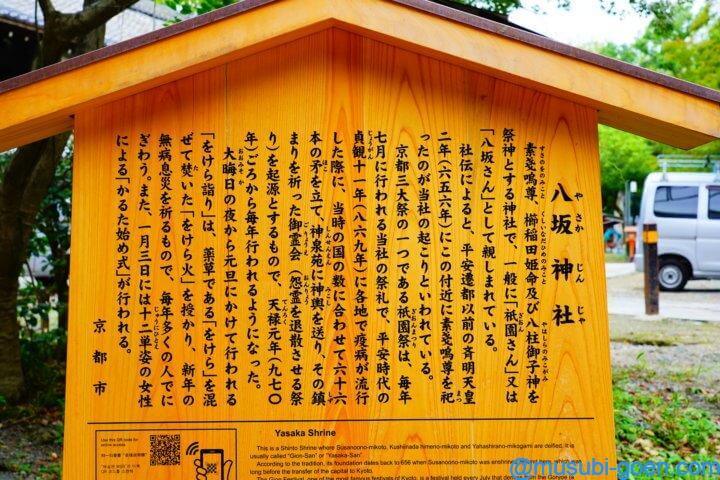 八坂神社
やさかじんじゃ
素戔嗚尊、櫛稲田姫命及び八柱御子神を
すさのをのみこと くしいなだひめのみこと やはしらのみこがみ
祭神とする神社で、一般に「祇園さん」又は
ぎおん
「八坂さん」として親しまれている。
社伝によると、平安遷都以前の斉明天皇
二年(六五六年)にこの付近に素戔嗚尊を祀
まつ
ったのが当社の起こりといわれている。
京都三大祭の一つである祇園祭は、毎年
ぎおんまつり
七月に行われる当社の祭礼で、平安時代の
貞観十一年(八六九年)に各地で疫病が流行
じょうがん
した際に、当時の国の数に合わせて六十六
本の矛を立て、神泉苑に神輿を送り、その鎮
ほこ しんせんえん みこし
まりを祈った御霊会(怨霊を退散させる祭
ごりょうえ おんりょう
り)を起源とするもので、天禄元年(九七〇
てんろく
年)ごろから毎年行われるようになった。
大晦日の夜から元旦にかけて行われる
おおみそか
「をけら詣り」は、薬草である「をけら」を混
ぜて焚いた「をけら火」を授かり、新年の
無病息災を祈るもので、毎年多くの人でに
ぎわう。また、一月三日には十二単姿の女性
じゅうにひとえ
による「かるた始め式」が行われる。
京都市
Use this QR code for
online access.
Yasaka Shrine
This is a Shinto Shrine where Susanoono-mikoto, Kushinada himeno-mikoto and Yahashirano-mikogami are deified. It is
usually called "Gion-San" or "Yasaka-San".
According to the tradition, its foundation dates back to 656 when Susanoono-mikoto was enshrined
long before the transfer of the capital to Kyoto.
The Gion Festival, one of the most famous festivals of Kyoto, is a festival held every July that
@musubi-goen.com